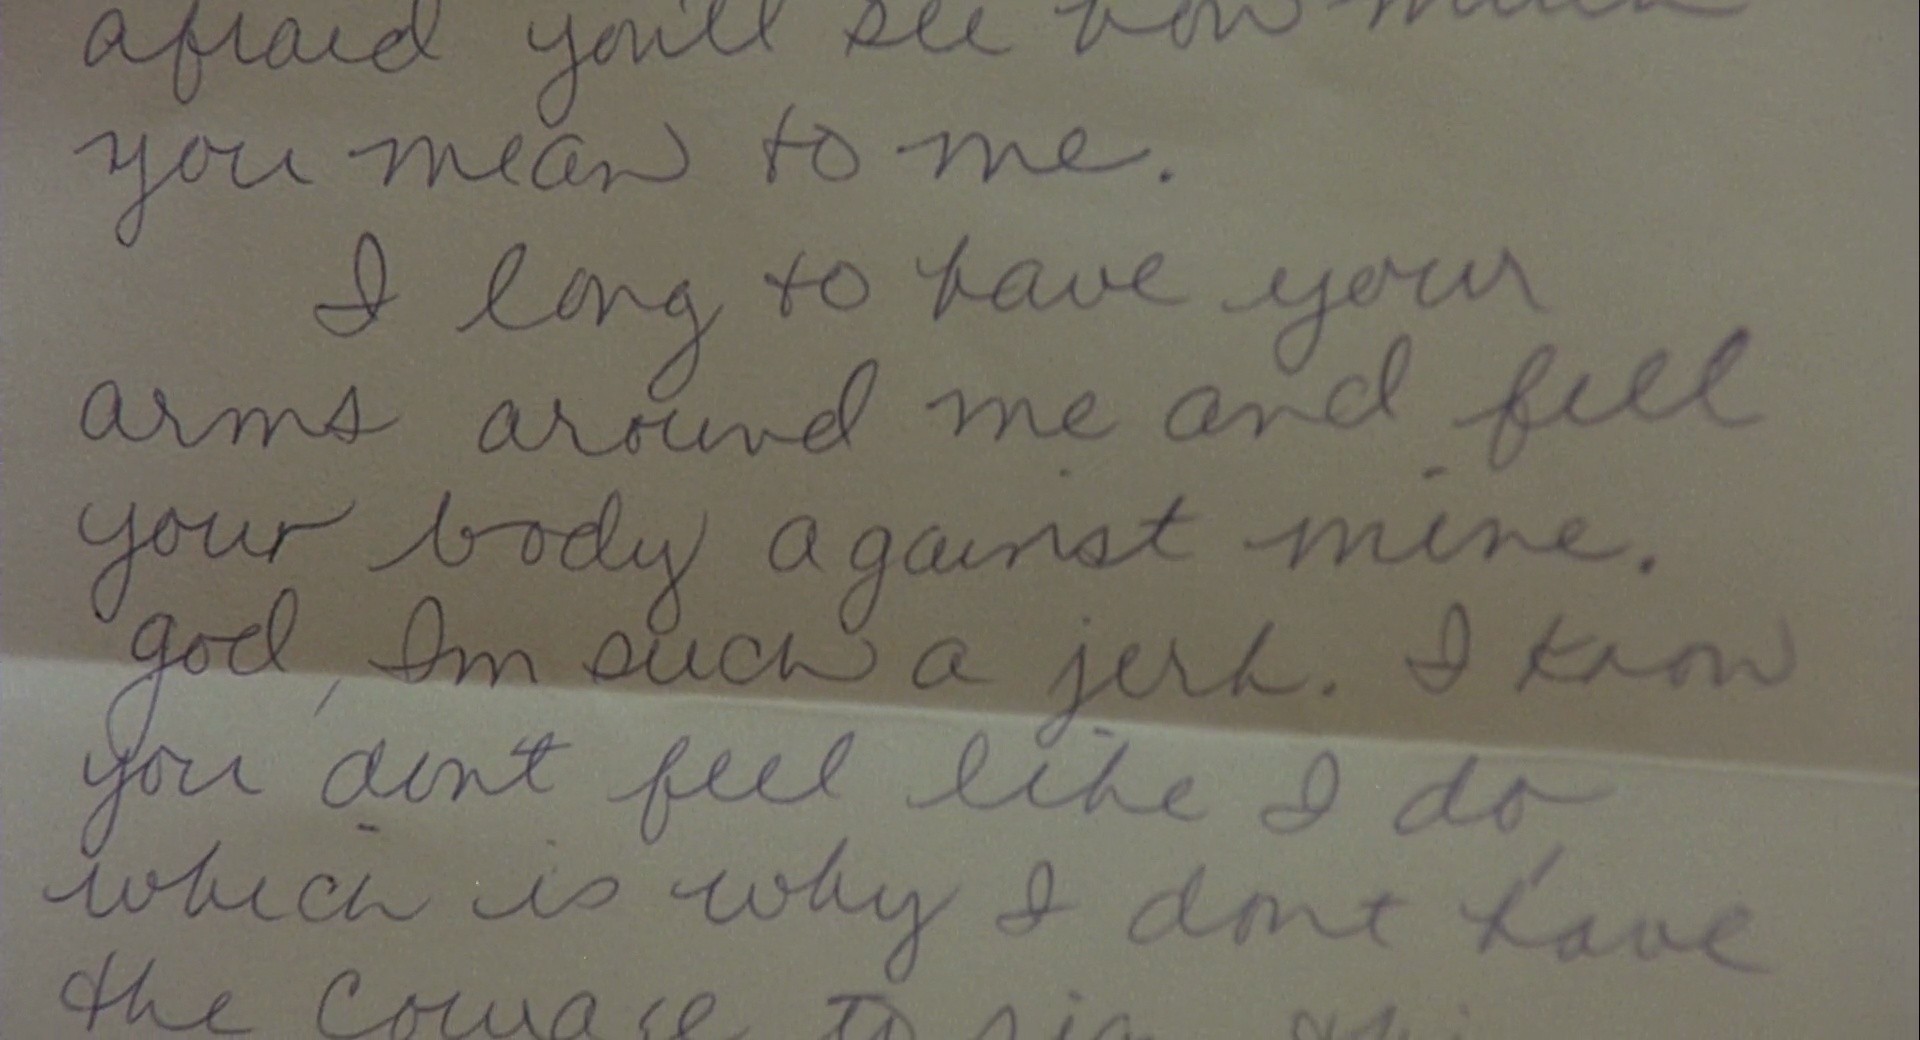 afraid you'll see how much
you mean to me.
I long to have your
arms around me and feel
your body against mine.
god, Im such a jerk. I know
you don't feel like I do
which is why I don't have
the courage to sign this